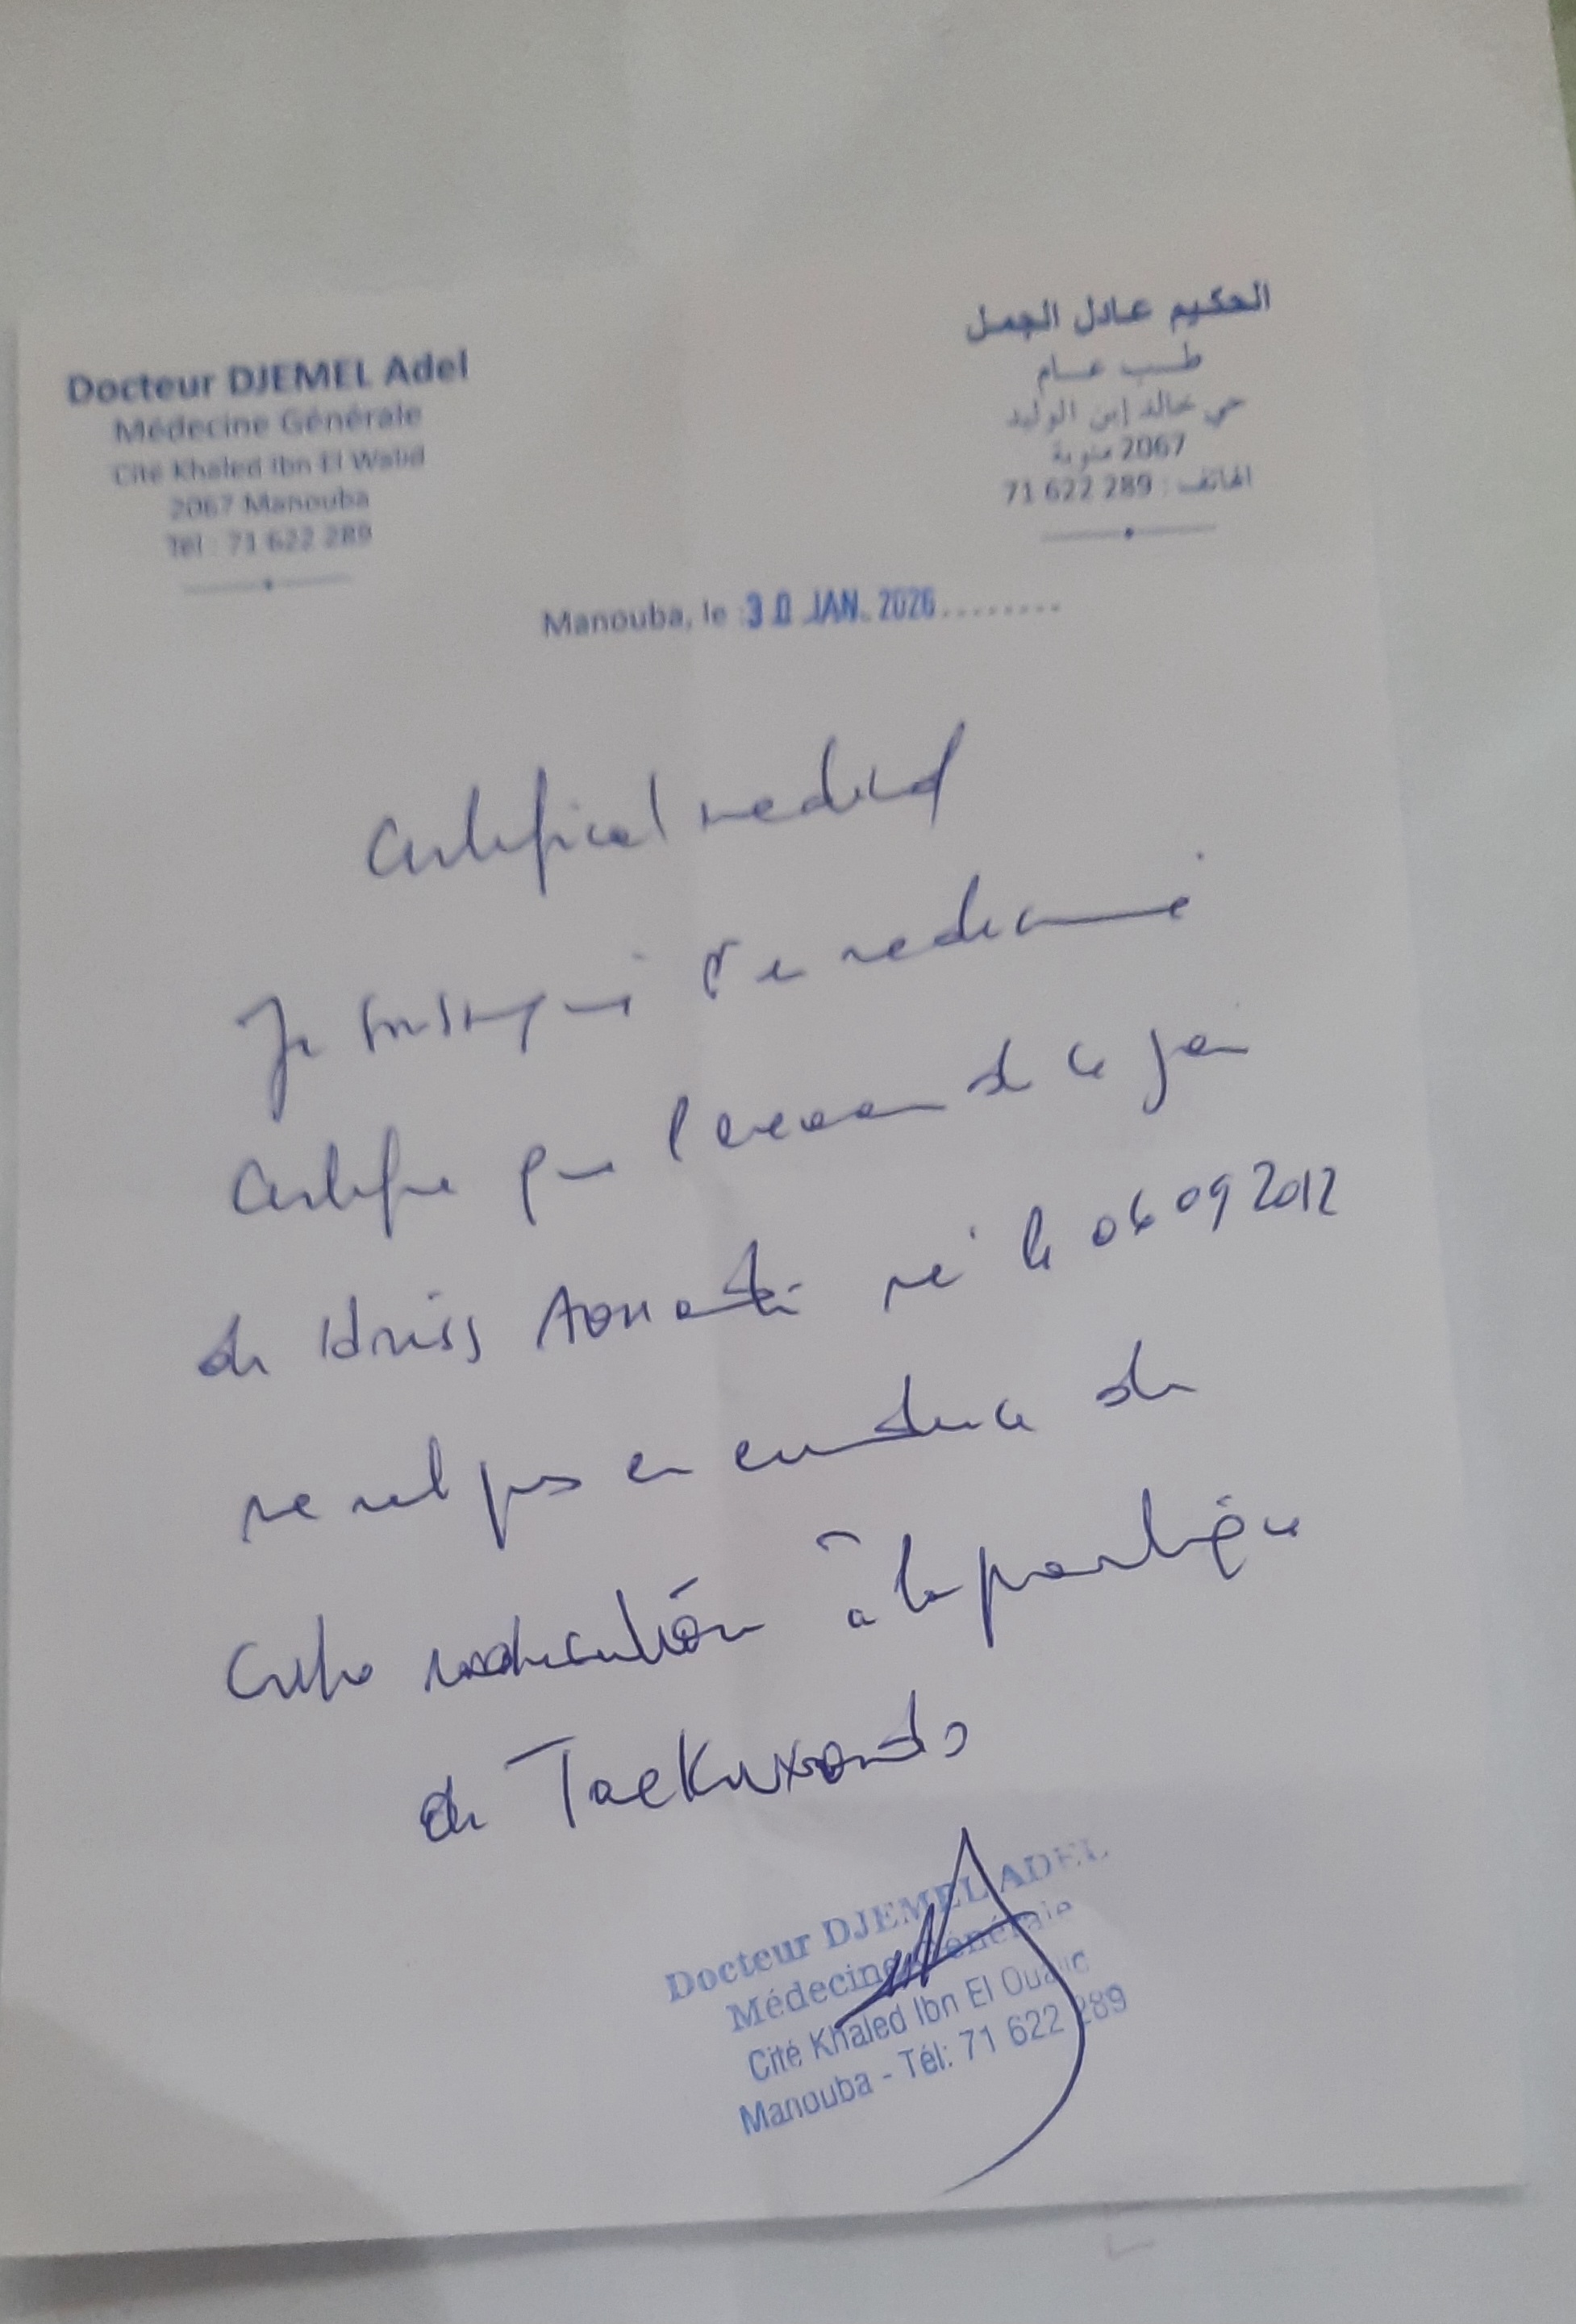 Docteur DJEMEL Adel
Médecine Générale
Cité Khaled Ibn El Walid
2067 Manouba
Tél : 71 622 289
الحكيم عادل الجمل
طب عام
حي خالد إبن الوليد
2067 منوبة
الهاتف : 71 622 289
Manouba, le 30 JAN. 2026
Certificat médical
Je soussigné Dr en médecine
Certifie que l'examen de ce jour
de Idriss né le 06 09 2012
ne met pas en évidence de
Contre indication à la pratique
du Taekwondo
Docteur DJEMEL ADEL
Médecine Générale
Cité Khaled Ibn El Oualid
Manouba - Tél: 71 622 289